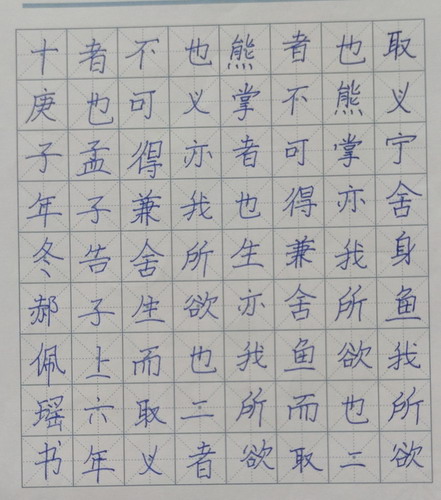 取义宁舍身鱼我所欲
也熊掌亦我所欲也二
者不可得兼舍鱼而取
熊掌者也生亦我所欲
也义亦我所欲也二者
不可得兼舍生而取义
者也孟子告子上六年
十庚子年冬郝佩瑶书